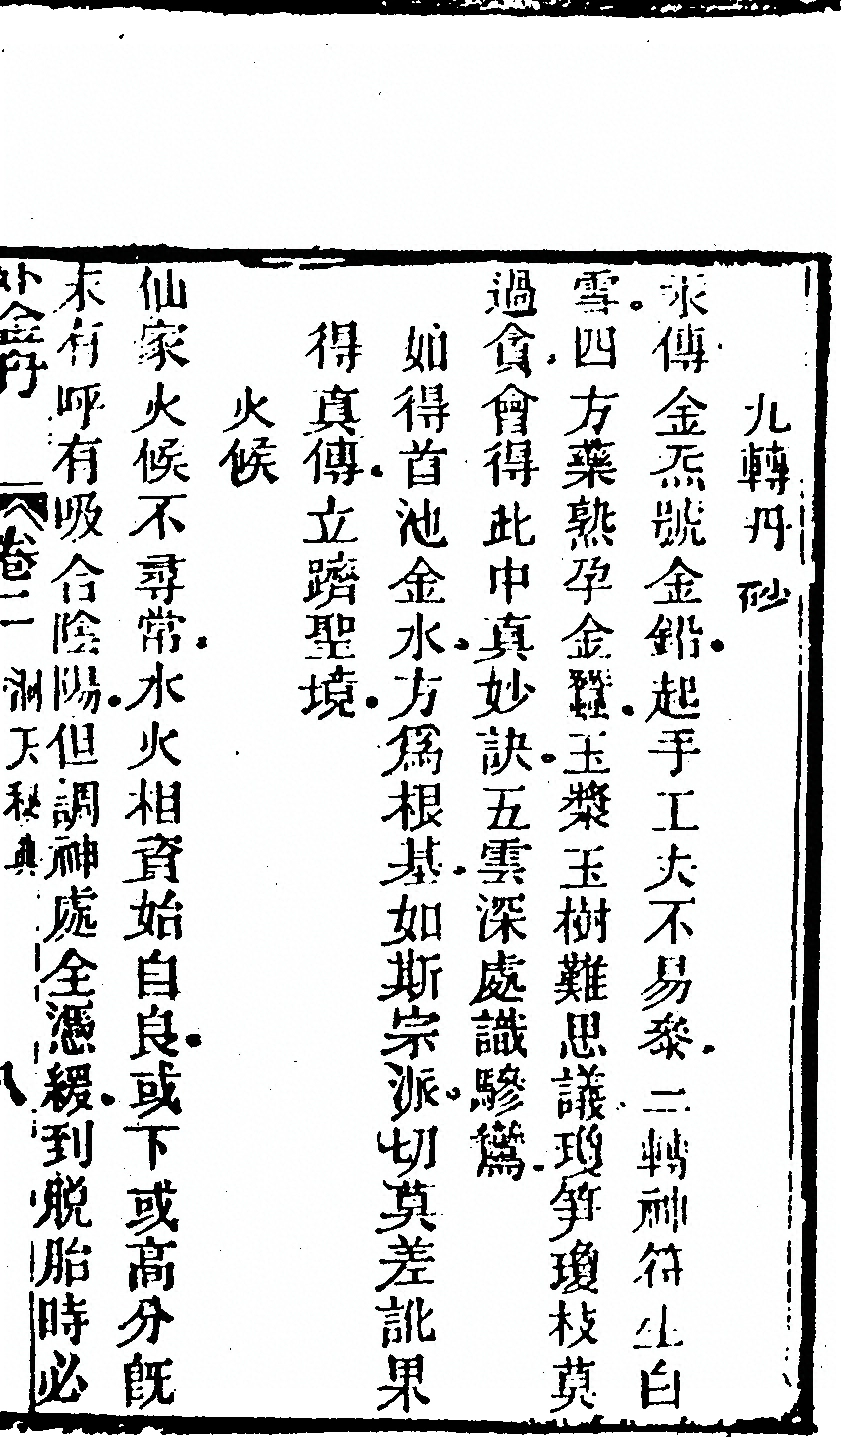 九轉丹砂
汞傳金炁號金鉛起手工夫不易泰二轉神符生白
雪四方藥熟孕金蠶玉漿玉樹難思議瓊笋瓊枝莫
過貪會得此中真妙訣五雲深處識驂鸞
如得首池金水方爲根基如斯宗派切莫差訛果
得真傳立躋聖境
火候
仙家火候不尋常水火相資始自良或下或高分旣
未有呼有吸合陰陽但調神處全憑緩到脱胎時必
外金丹 卷二 洞天秘典 八